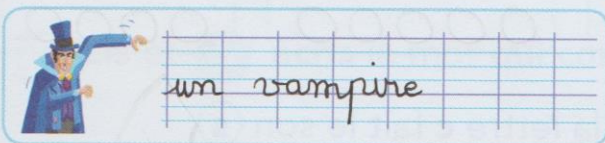 un vampire